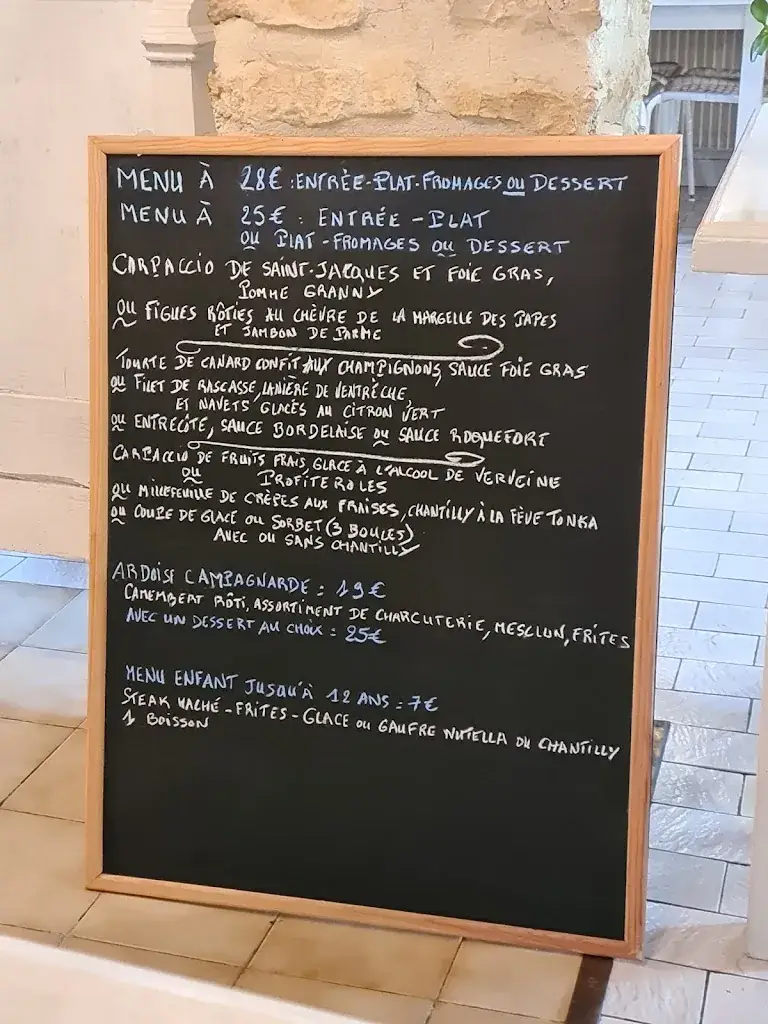 MENU À 28€ : ENTRÉE-PLAT-FROMAGES OU DESSERT
MENU À 25€ : ENTRÉE - PLAT
OU PLAT-FROMAGES OU DESSERT
CARPACCIO DE SAINT-JACQUES ET FOIE GRAS,
POMME GRANNY
OU FIGUES RÔTIES AU CHÈVRE DE LA MARGELLE DES PAPES
ET JAMBON DE PARME
TOURTE DE CANARD CONFIT AUX CHAMPIGNONS, SAUCE FOIE GRAS
OU FILET DE RASCASSE, LANIÈRE DE VENTRÈCHE,
ET NAVETS GLACÉS AU CITRON VERT
OU ENTRECÔTE, SAUCE BORDELAISE OU SAUCE ROQUEFORT
CARPACCIO DE FRUITS FRAIS, GLACE À L'ALCOOL DE VERVEINE
OU PROFITEROLES
OU MILLEFEUILLE DE CRÊPES AUX FRAISES, CHANTILLY À LA FÈVE TONKA
OU COUPE DE GLACE OU SORBET (3 BOULES)
AVEC OU SANS CHANTILLY
ARDOISE CAMPAGNARDE : 19€
CAMEMBERT RÔTI, ASSORTIMENT DE CHARCUTERIE, MESCLUN, FRITES
AVEC UN DESSERT AU CHOIX : 25€
MENU ENFANT JUSQU'À 12 ANS : 7€
STEAK HACHÉ - FRITES - GLACE OU GAUFRE NUTELLA OU CHANTILLY
1 BOISSON